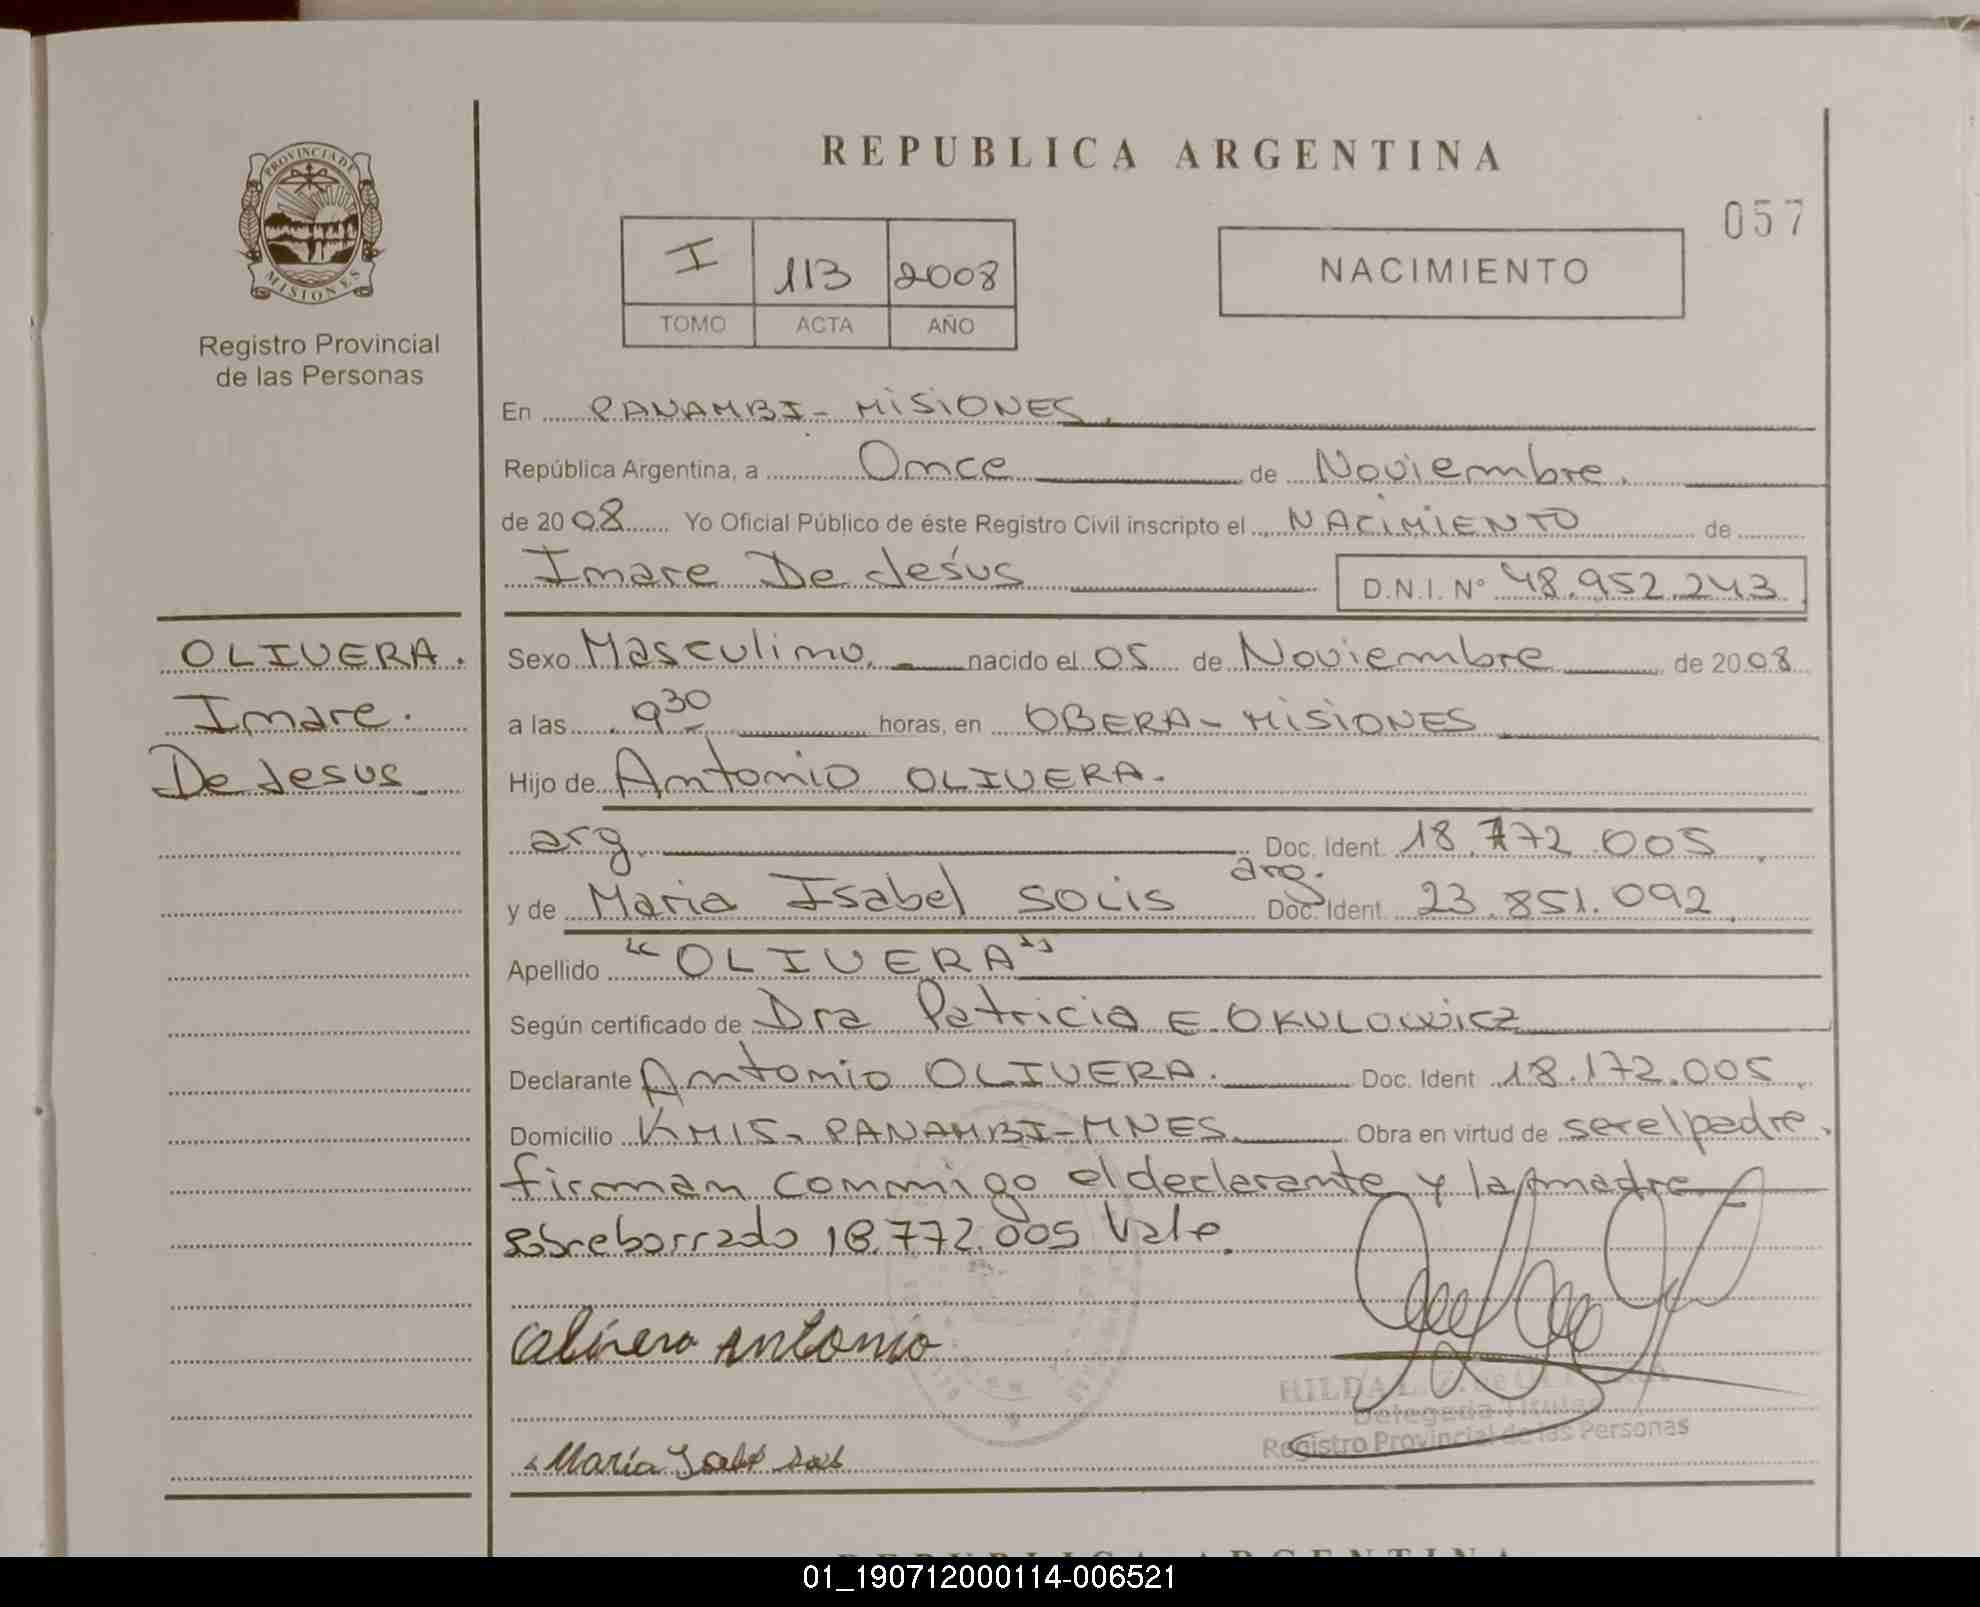 REPUBLICA ARGENTINA
057
I 113 2008
TOMO ACTA AÑO
NACIMIENTO
PROVINCIA DE
MISIONES
Registro Provincial
de las Personas
En PANAMBI - MISIONES.
República Argentina, a Once de Noviembre.
de 2008 Yo Oficial Público de éste Registro Civil inscripto el NACIMIENTO de
Imare De Jesús D.N.I. N° 48.952.243
OLIVERA.
Imare.
De Jesus
Sexo Masculino nacido el 05 de Noviembre de 2008
a las 9 30 horas, en OBERA - MISIONES
Hijo de Antonio OLIVERA.
arg. Doc. Ident. 18.772.005
y de Maria Isabel SOLIS arg. Doc. Ident. 23.851.092
Apellido "OLIVERA"
Según certificado de Dra Patricia E. OKULOWICZ
Declarante Antonio OLIVERA. Doc. Ident 18.172.005
Domicilio KM15 - PANAMBI - MNES Obra en virtud de ser el padre.
firman conmigo el declarante y la madre
sobreborrado 18.772.005 Vale.
Olivera Antonio
María Isabel Solis
HILDA
Delegada Titular
Registro Provincial de las Personas
REPUBLICA ARGENTINA
01_190712000114-006521